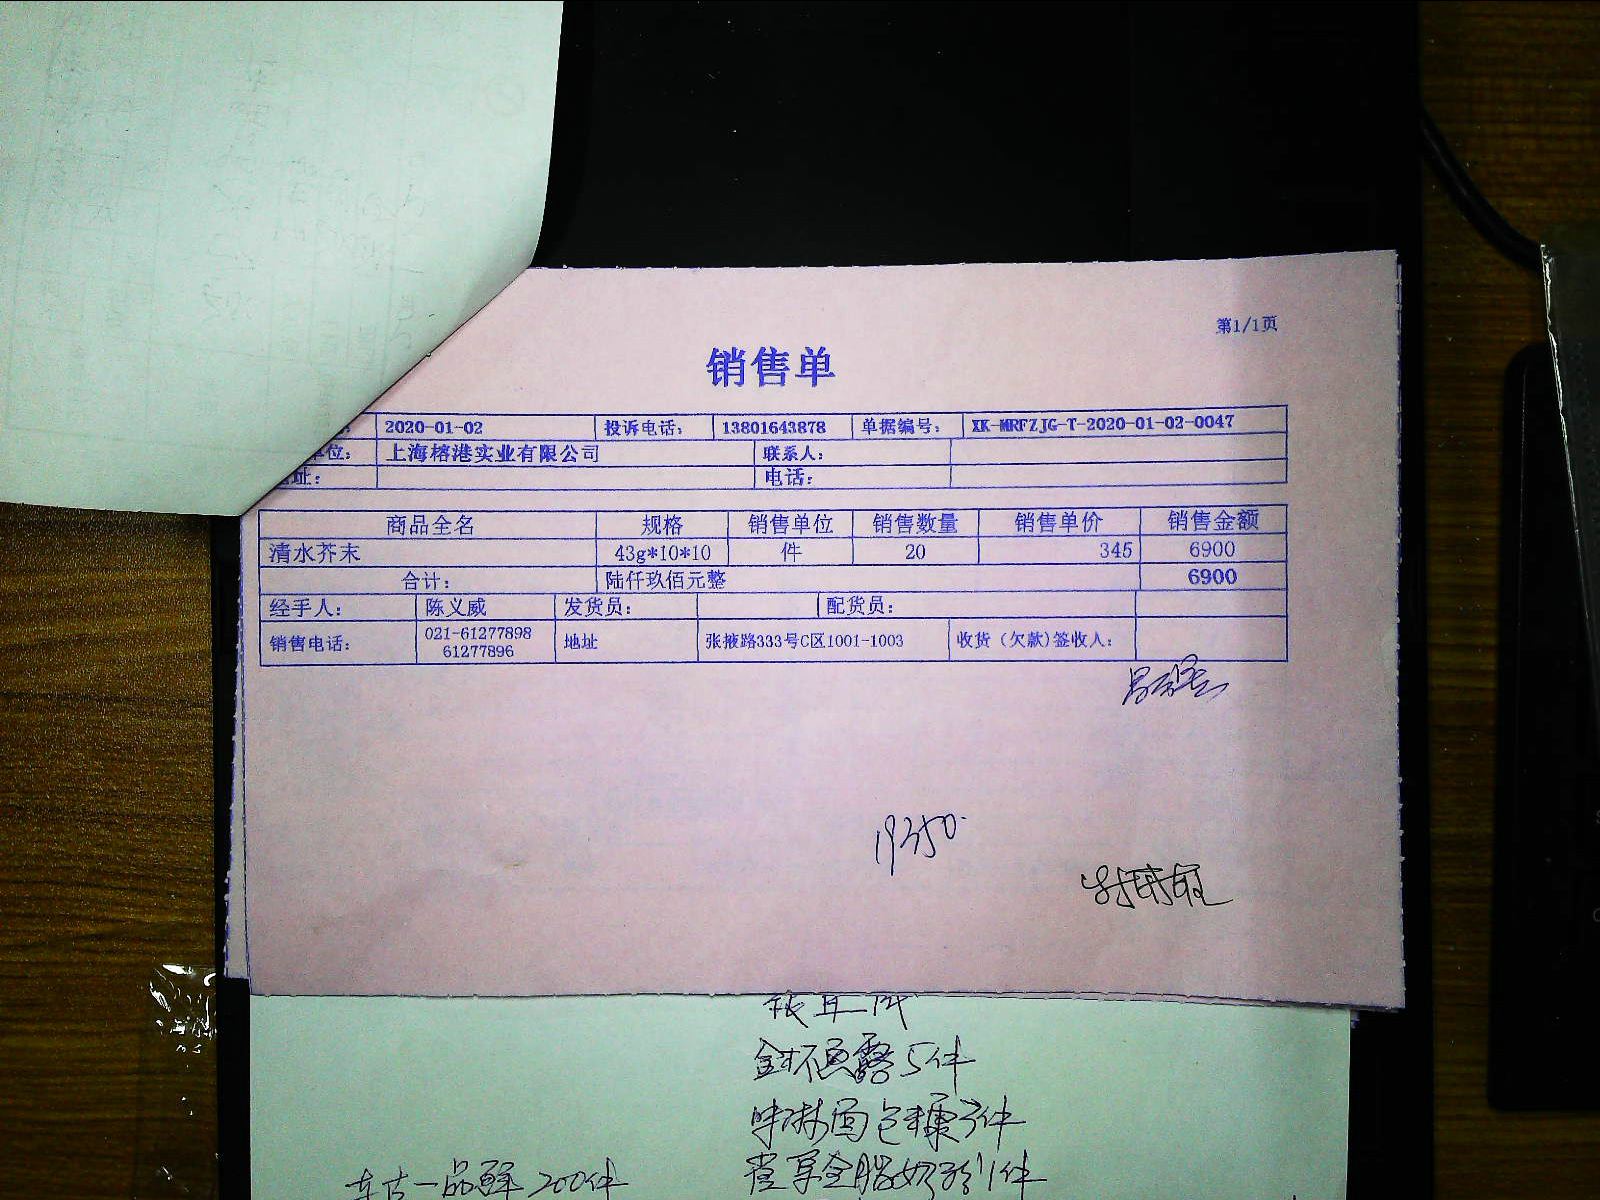 第1/1页
销售单
2020-01-02 投诉电话: 13801643878 单据编号: XK-MRFZJG-T-2020-01-02-0047
位: 上海榕港实业有限公司 联系人:
址: 电话:
商品全名 规格 销售单位 销售数量 销售单价 销售金额
清水芥末 43g*10*10 件 20 345 6900
合计: 陆仟玖佰元整 6900
经手人: 陈义威 发货员: 配货员:
销售电话: 021-61277898 61277896 地址 张掖路333号C区1001-1003 收货（欠款)签收人:
19350
5件
面包糠3件
全脂奶粉1件
一品鲜200件